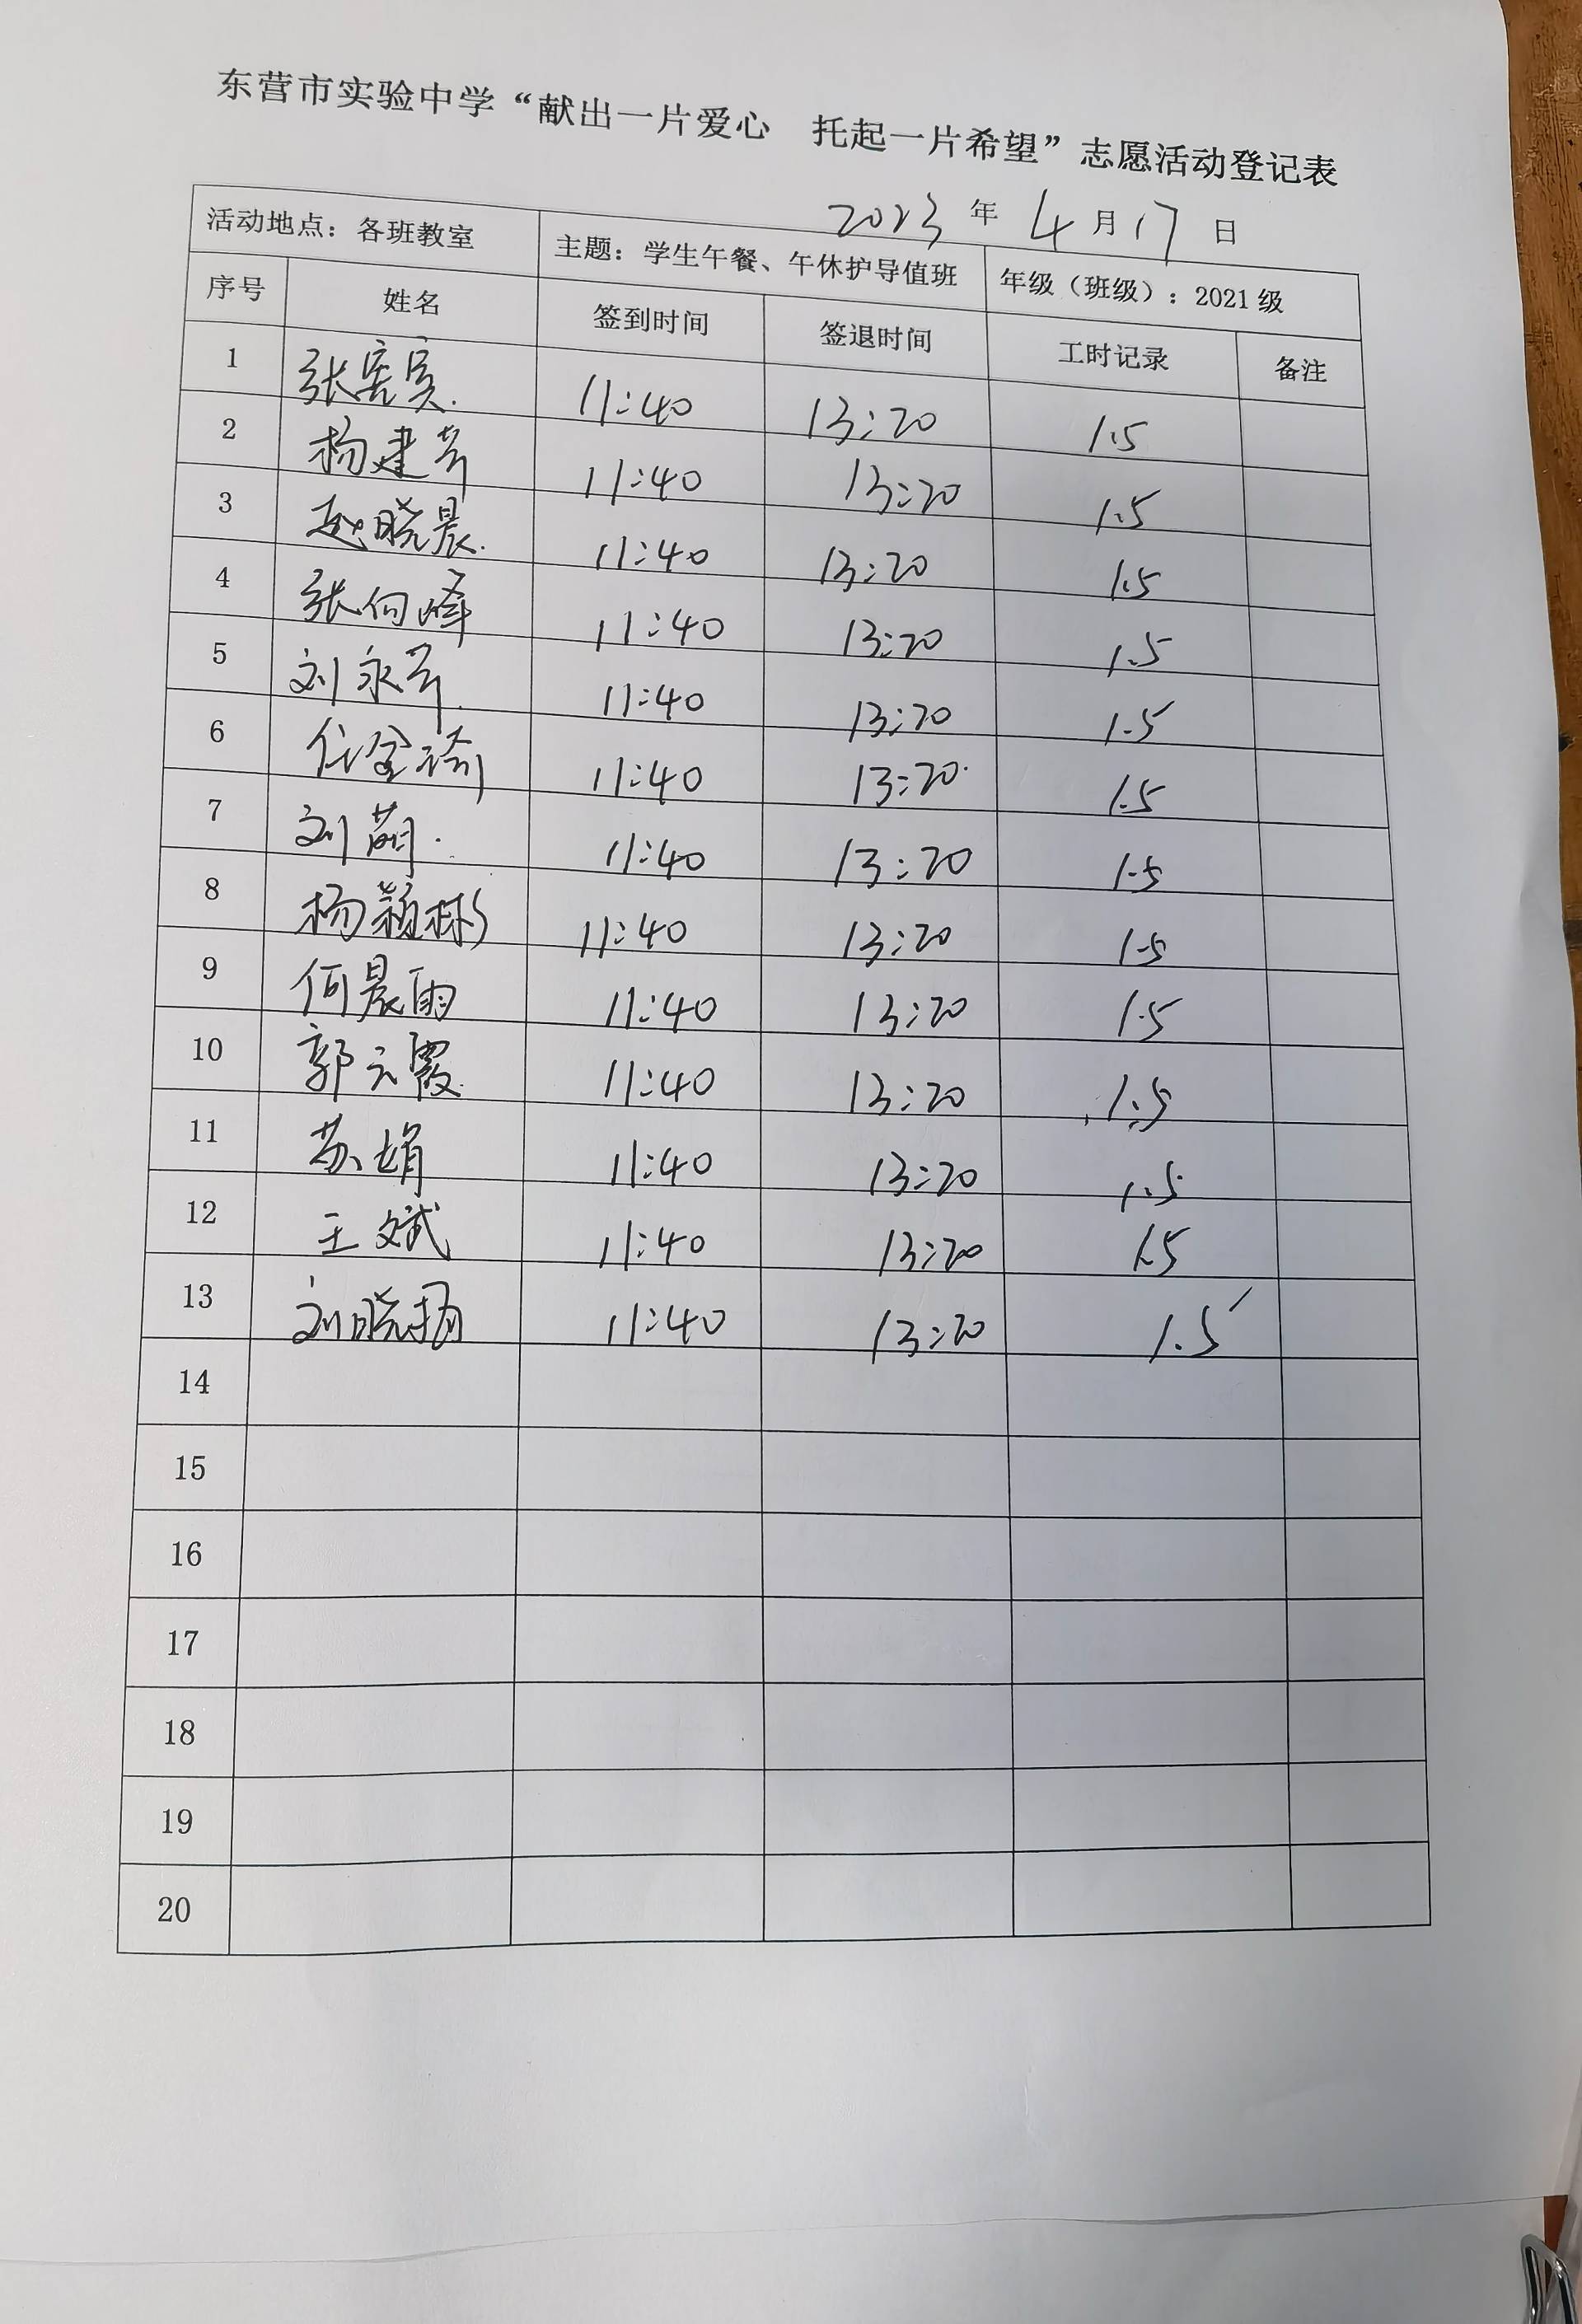 东营市实验中学“献出一片爱心 托起一片希望”志愿活动登记表
2023 年 4 月 17 日
活动地点：各班教室 主题：学生午餐、午休护导值班 年级（班级）：2021级
序号 姓名 签到时间 签退时间 工时记录 备注
1 张 11:40 13:20 1.5
2 杨建芳 11:40 13:20 1.5
3 赵晓晨 11:40 13:20 1.5
4 张向峰 11:40 13:20 1.5
5 刘永芳 11:40 13:20 1.5
6 任金 11:40 13:20 1.5
7 刘萌 11:40 13:20 1.5
8 杨颖彬 11:40 13:20 1.5
9 何晨雨 11:40 13:20 1.5
10 郭云霞 11:40 13:20 1.5
11 苏娟 11:40 13:20 1.5
12 王斌 11:40 13:20 1.5
13 刘晓扬 11:40 13:20 1.5
14
15
16
17
18
19
20